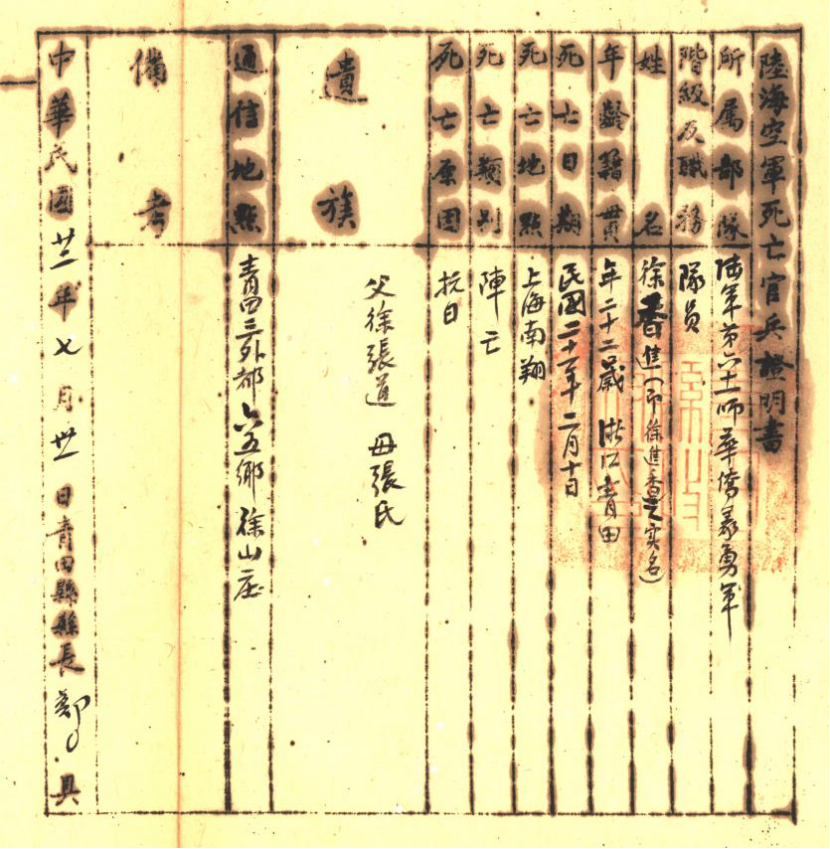 陸海空軍死亡官兵證明書
所属部隊 陆军第六十一师華僑義勇军
階級及職務 隊员
姓名 徐香進（即徐進香之实名）
年齡籍貫 年二十二歲 浙江青田
死亡日期 民國二十一年二月十日
死亡地點 上海南翔
死亡類别 陣亡
死亡原因 抗日
遺族 父徐張道 母張氏
通信地點 青田三外都 六五鄉 徐山庄
備考
中華民國廿三年七月廿 日青田縣縣長鄭 具